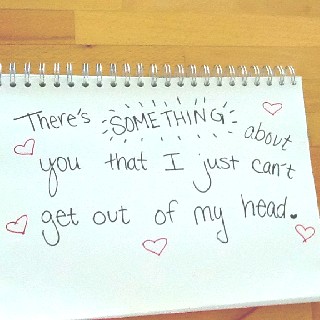 There's SOMETHING about
you that I just can't
get out of my head.